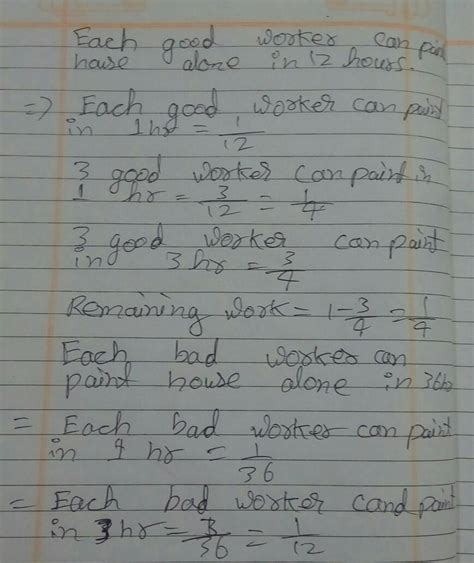 Each good worker can paint
house alone in 12 hours.
=> Each good worker can paint
in 1hr = 1/12
3 good worker can paint in
1 hr = 3/12 = 1/4
3 good worker can paint
in 3 hr = 3/4
Remaining work = 1-3/4 = 1/4
Each bad worker can
paint house alone in 36h
= Each bad worker can paint
in 1 hr = 1/36
= Each bad worker cand paint
in 3 hr = 3/36 = 1/12